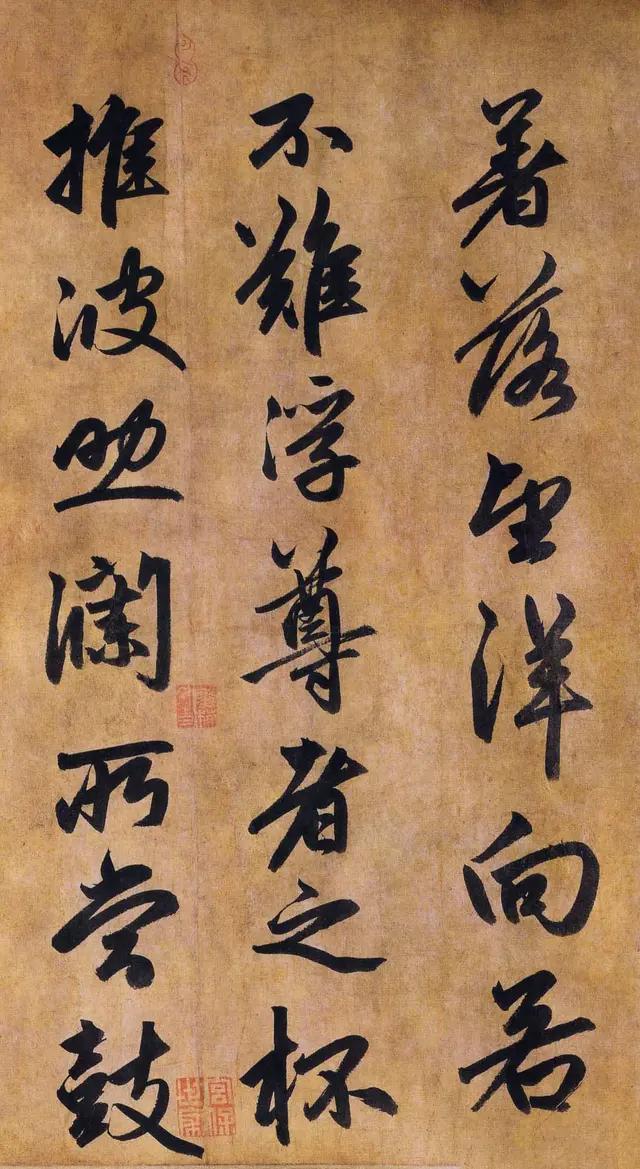 著落望洋向若
不難浮尊者之杯
推波助瀾所當鼓